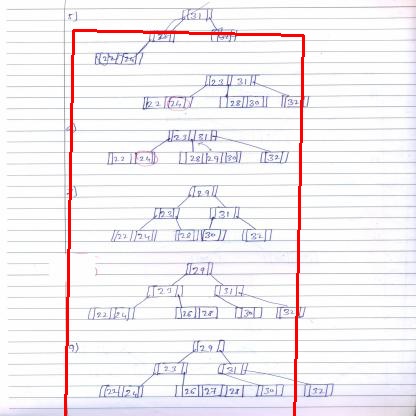 5) 31
22 24
23 31
22 24 28 30 32
23 31
22 24 28 29 30 32
29
23 31
22 24 28 30 32
29
23 31
22 24 26 28 30 32
9) 29
23 31
22 24 26 27 28 30 32